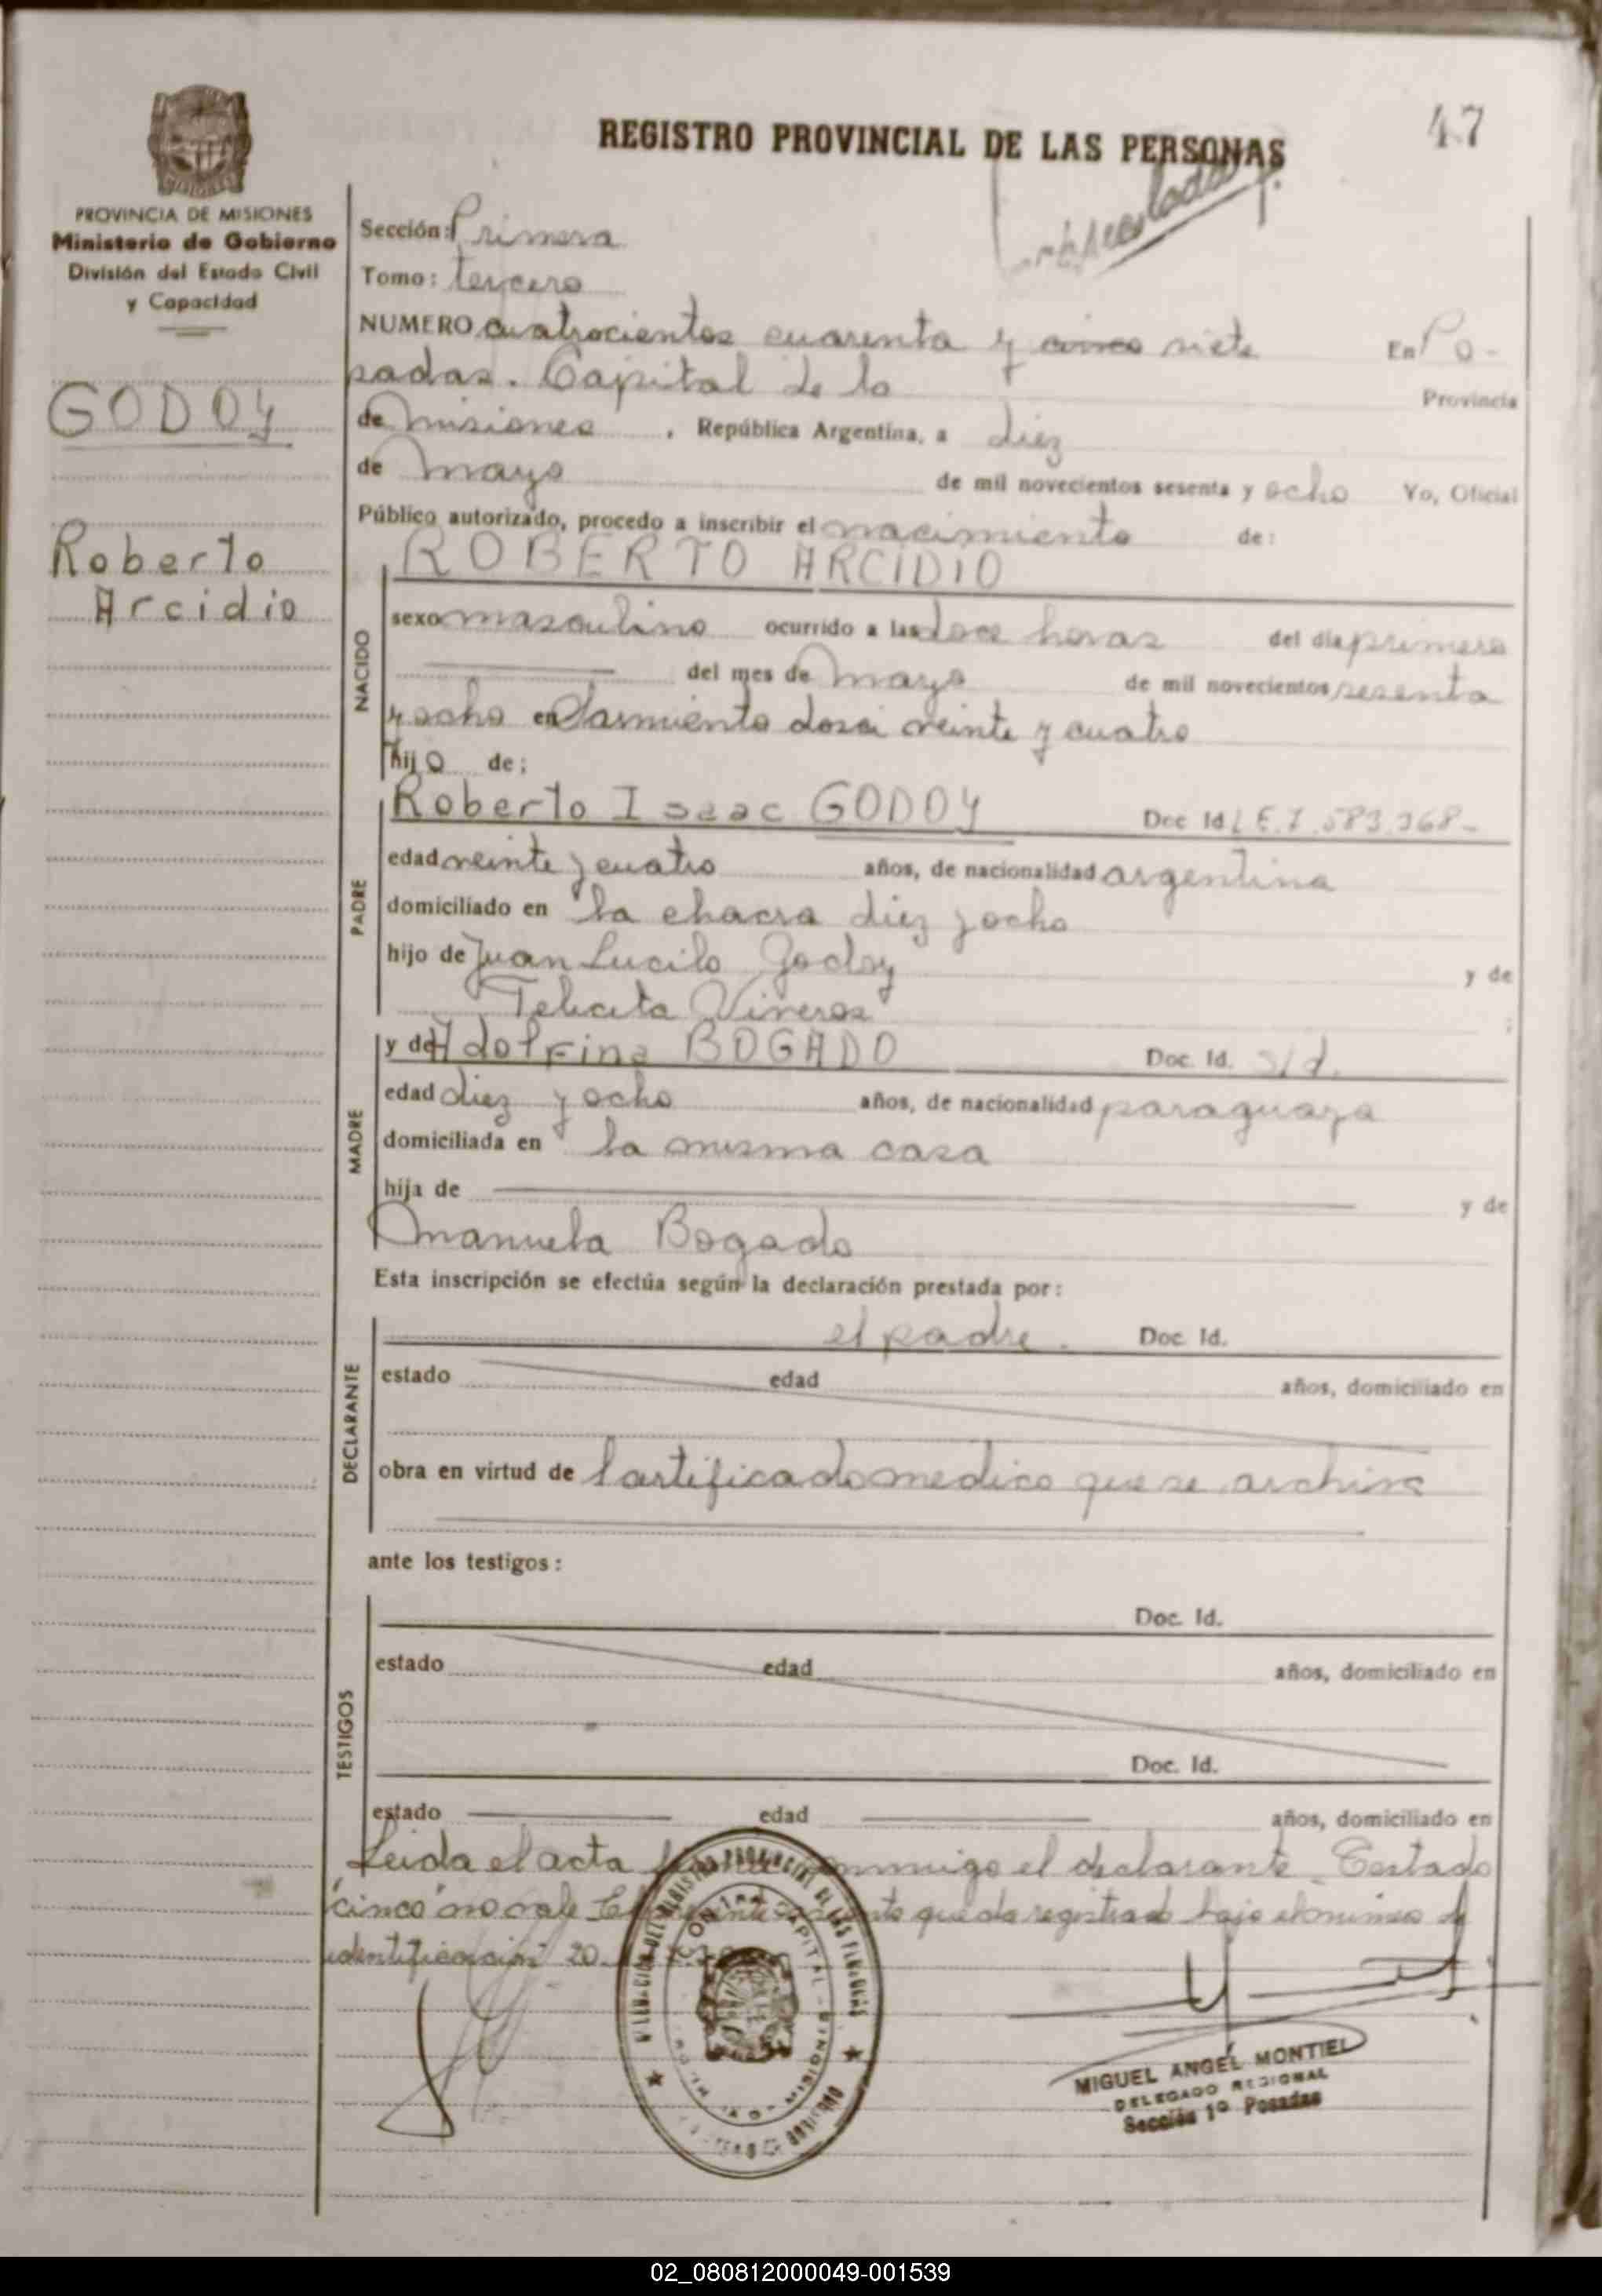 47
REGISTRO PROVINCIAL DE LAS PERSONAS
PROVINCIA DE MISIONES
Ministerio de Gobierno
División del Estado Civil
y Capacidad
GODOY
Roberto
Arcidio
Sección: Primera
Tomo: tercero
NUMERO cuatrocientos cuarenta y cinco siete En Po-
sadas. Capital de la Provincia
de Misiones, República Argentina, a diez
de Mayo de mil novecientos sesenta y ocho Yo, Oficial
Público autorizado, procedo a inscribir el nacimiento de:
NACIDO
ROBERTO ARCIDIO
sexo masculino ocurrido a las doce horas del día primero
del mes de Mayo de mil novecientos sesenta
y ocho en Sarmiento veinte y cuatro
hijo de:
PADRE
Roberto Isaac GODOY Doc Id L E. 7.583.368-
edad veinte y cuatro años, de nacionalidad argentina
domiciliado en la chacra diez y ocho
hijo de Juan Lucilo Godoy y de
Viveros
MADRE
y de Adolfina BOGADO Doc. Id. s/d.
edad diez y ocho años, de nacionalidad paraguaya
domiciliada en la misma casa
hija de y de
Manuela Bogado
Esta inscripción se efectúa según la declaración prestada por:
DECLARANTE
el padre. Doc. Id.
estado edad años, domiciliado en
obra en virtud de Certificado medico que se archiva
ante los testigos:
TESTIGOS
Doc. Id.
estado edad años, domiciliado en
Doc. Id.
estado edad años, domiciliado en
Leida el acta conmigo el declarante. Testado
"cinco" no vale queda registrado bajo el numero de
identificacion 20.
MIGUEL ANGEL MONTIEL
DELEGADO REGIONAL
Sección 1º Posadas
02_080812000049-001539